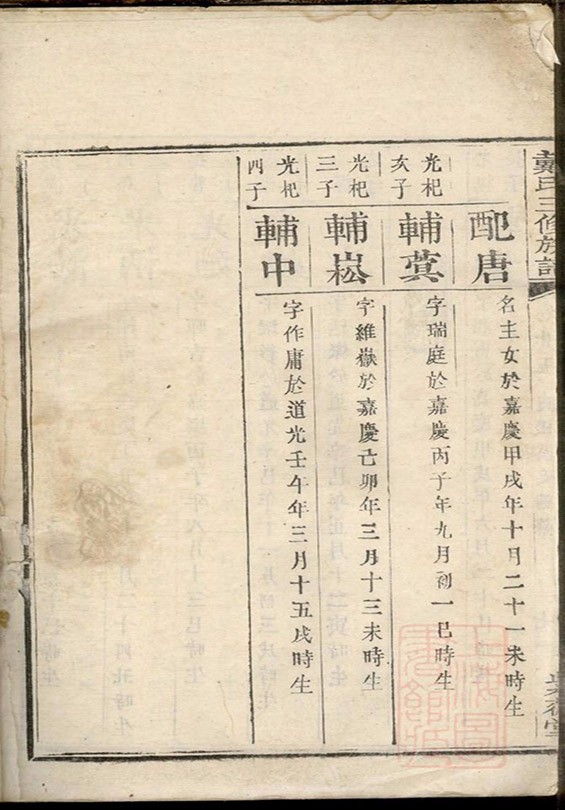 戴氏三修族譜
配唐
名主女於嘉慶甲戌年十月二十一未時生
光杞
亥子
輔蓂
字瑞庭於嘉慶丙子年九月初一巳時生
光杞
三子
輔崧
字維嶽於嘉慶己卯年三月十三未時生
光杞
四子
輔中
字作庸於道光壬午年三月十五戌時生